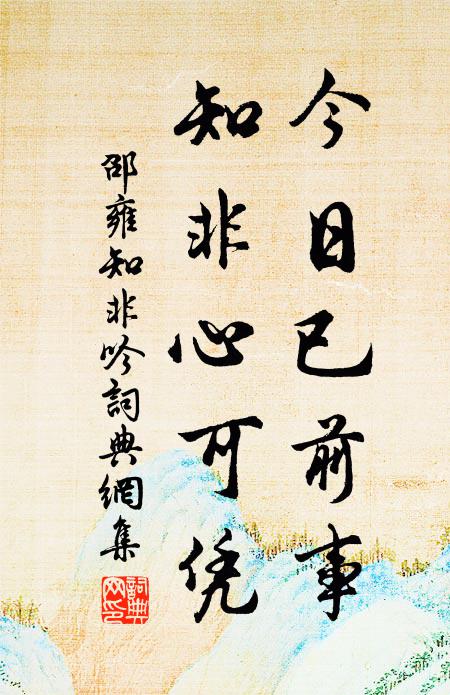 今日已前事
知非心可凭
邵雍知非吟詞典網集
詞典
网印